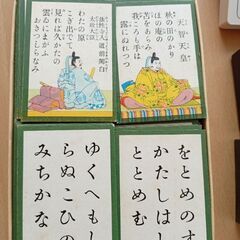 天智天皇
秋の田のかり
ほの庵の
苫をあらみ
我ころも手は
露にぬれつつ
法性寺入道前関白
太政大臣
わたの原
こぎ出でて
見れば久かたの
雲ゐにまがふ
おきつしらなみ
をとめのす
かたしはし
ととめむ
ゆくへもし
らぬこひの
みちかな